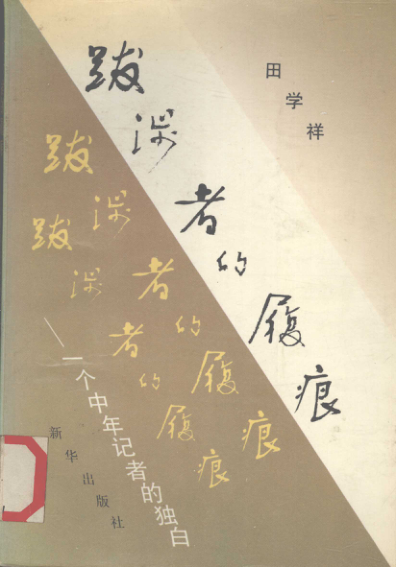 田学祥
跋涉者的履痕
跋涉者的履痕
跋涉者的履痕
——一个中年记者的独白
新华出版社